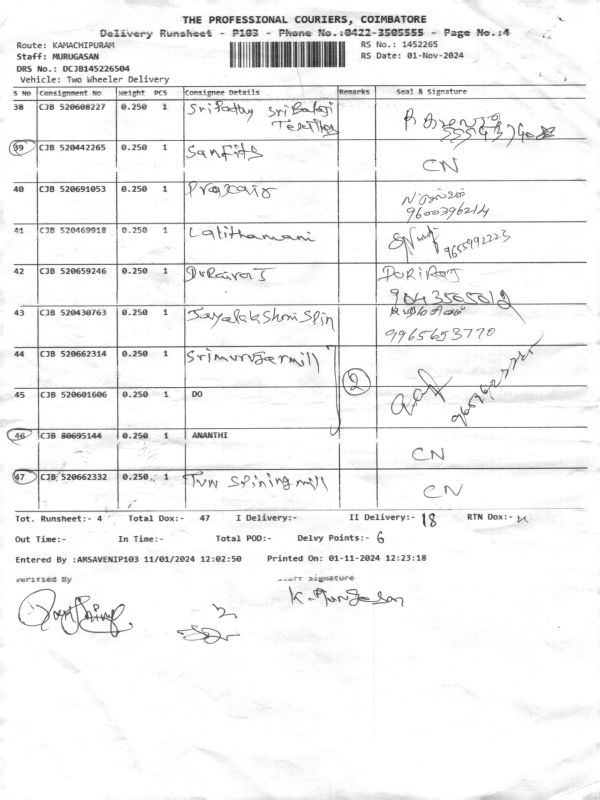 THE PROFESSIONAL COURIERS, COIMBATORE
Delivery Runsheet - P103 - Phone No.:0422-3505555 - Page No.:4
Route: KAMACHIPURAM RS No.: 1452265
Staff: MURUGASAN RS Date: 01-Nov-2024
DRS No.: DCJB145226504
Vehicle: Two Wheeler Delivery
S No Consignment No Weight PCS Consignee Details Remarks Seal & Signature
38 CJB 520608227 0.250 1 Sri Balaji
39 CJB 520442265 0.250 1 Sanfits CN
40 CJB 520691053 0.250 1
9600396214
41 CJB 520469918 0.250 1 Lalithamani 9655992223
42 CJB 520659246 0.250 1 DuRairaJ DURIRAJ
43 CJB 520430763 0.250 1 Jayalakshmi Spin
9965653770
44 CJB 520662314 0.250 1 Srimurugar mill 2
45 CJB 520601606 0.250 1 DO
46 CJB 80695144 0.250 1 ANANTHI CN
47 CJB 520662332 0.250 1 Spining mill CN
Tot. Runsheet:- 4 Total Dox:- 47 I Delivery:- II Delivery:- 18 RTN Dox:-
Out Time:- In Time:- Total POD:- Delvy Points:- 6
Entered By :AMSAVENIP103 11/01/2024 12:02:50 Printed On: 01-11-2024 12:23:18
Verified By Staff Signature
K. Murugesan